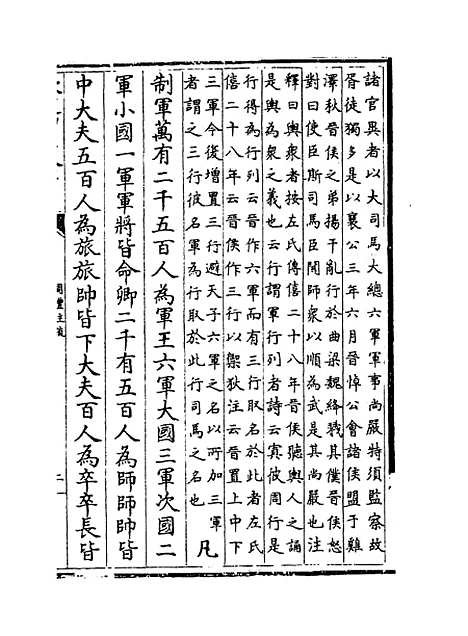 諸官異者以大司馬大總六軍軍事尚嚴特須監察故
胥徒獨多是以襄公三年六月晉悼公會諸侯盟于雞
澤秋晉侯之弟揚干亂行於曲梁魏絳戮其僕晉侯怒
對曰使臣斯司馬臣聞師衆以順為武是其尚嚴也注
釋曰輿衆者按左氏傳僖二十八年晉侯聽輿人之誦
是輿為衆之義也云行謂軍行列者詩云寘彼周行是
行得為行列云晉作六軍而有三行取名於此者左氏
僖二十八年云晉侯作三行以禦狄注云晉置上中下
三軍今復增置三行避天子六軍之名以所加三軍
者謂之三行彼名軍為行取於此行司馬之名也
凡
制軍萬有二千五百人為軍王六軍大國三軍次國二
軍小國一軍軍將皆命卿二千有五百人為師師帥皆
中大夫五百人為旅旅帥皆下大夫百人為卒卒長皆
周禮注疏